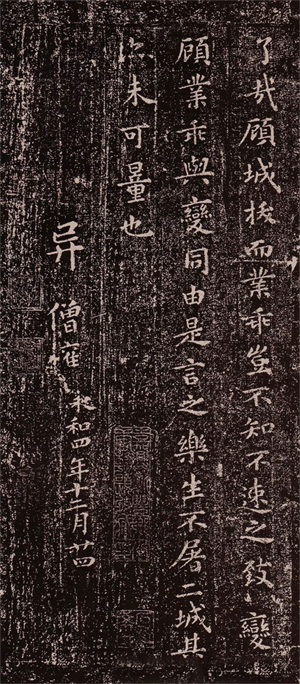 了哉顧城拔而業乖豈不知不速之致變
顧業乖與變同由是言之樂生不屠二城其
亦未可量也
异
僧權
永和四年十二月廿四